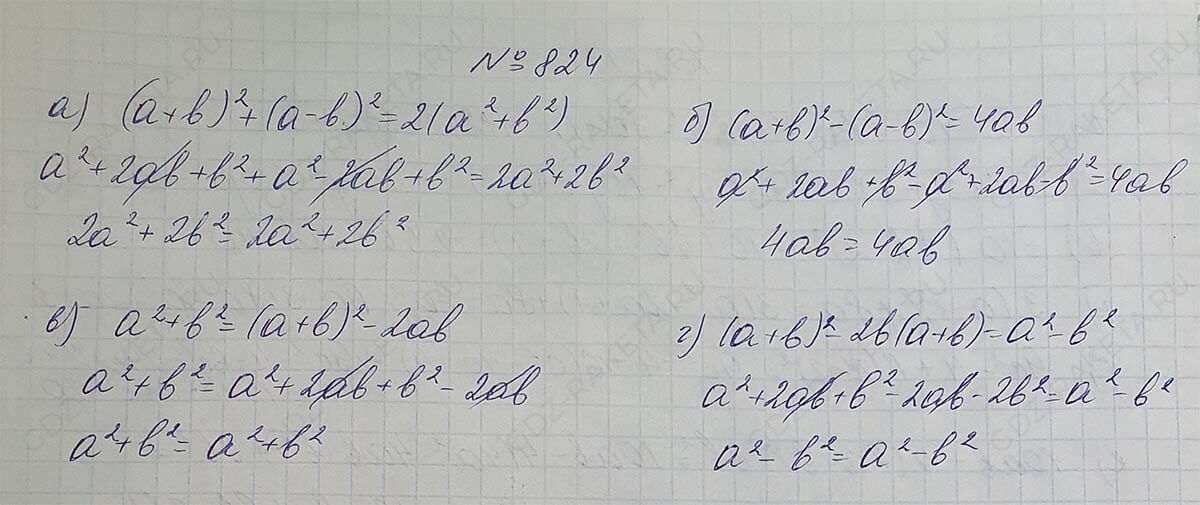 № 824
а) (a+b)²+(a-b)²=2(a²+b²)
a²+2ab+b²+a²-2ab+b²=2a²+2b²
2a²+2b²=2a²+2b²
б) (a+b)²-(a-b)²=4ab
a²+2ab+b²-a²+2ab-b²=4ab
4ab=4ab
в) a²+b²=(a+b)²-2ab
a²+b²=a²+2ab+b²-2ab
a²+b²=a²+b²
г) (a+b)²-2b(a+b)=a²-b²
a²+2ab+b²-2ab-2b²=a²-b²
a²-b²=a²-b²